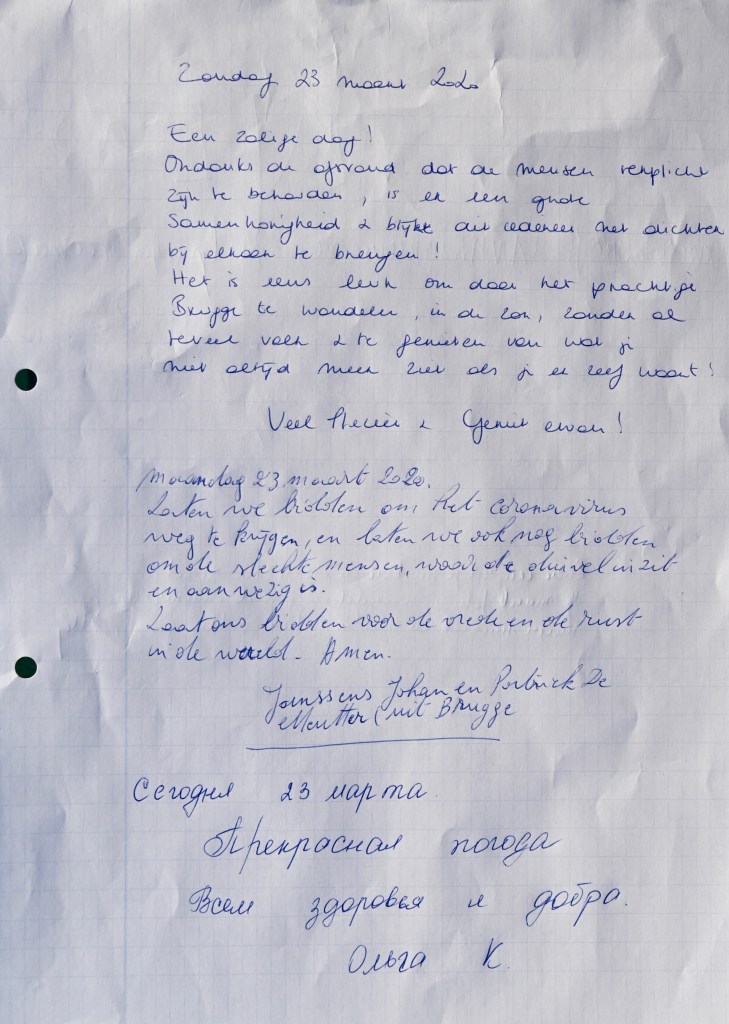 Zondag 23 maart 2020
Een zalige dag!
Ondanks de afstand dat de mensen verplicht
zijn te behouden, is er een grote
Samenhorigheid & blijkt dit iedereen net dichter
bij elkaar te brengen!
Het is eens leuk om door het prachtige
Brugge te wandelen, in de zon, zonder al
teveel volk & te genieten van wat je
niet altijd meer ziet als je er zelf woont!
Veel & Geniet ervan!
maandag 23 maart 2020.
Laten we bidden om het coronavirus
weg te krijgen, en laten we ook nog bidden
om de slechte mensen, waar de duivel in zit
en aanwezig is.
Laat ons bidden voor de vrede en de rust
in de wereld. Amen.
Janssens Johan en Patrick De
Meutter (uit Brugge
Сегодня 23 марта.
Прекрасная погода
Всем здоровья и добра.
Ольга К.